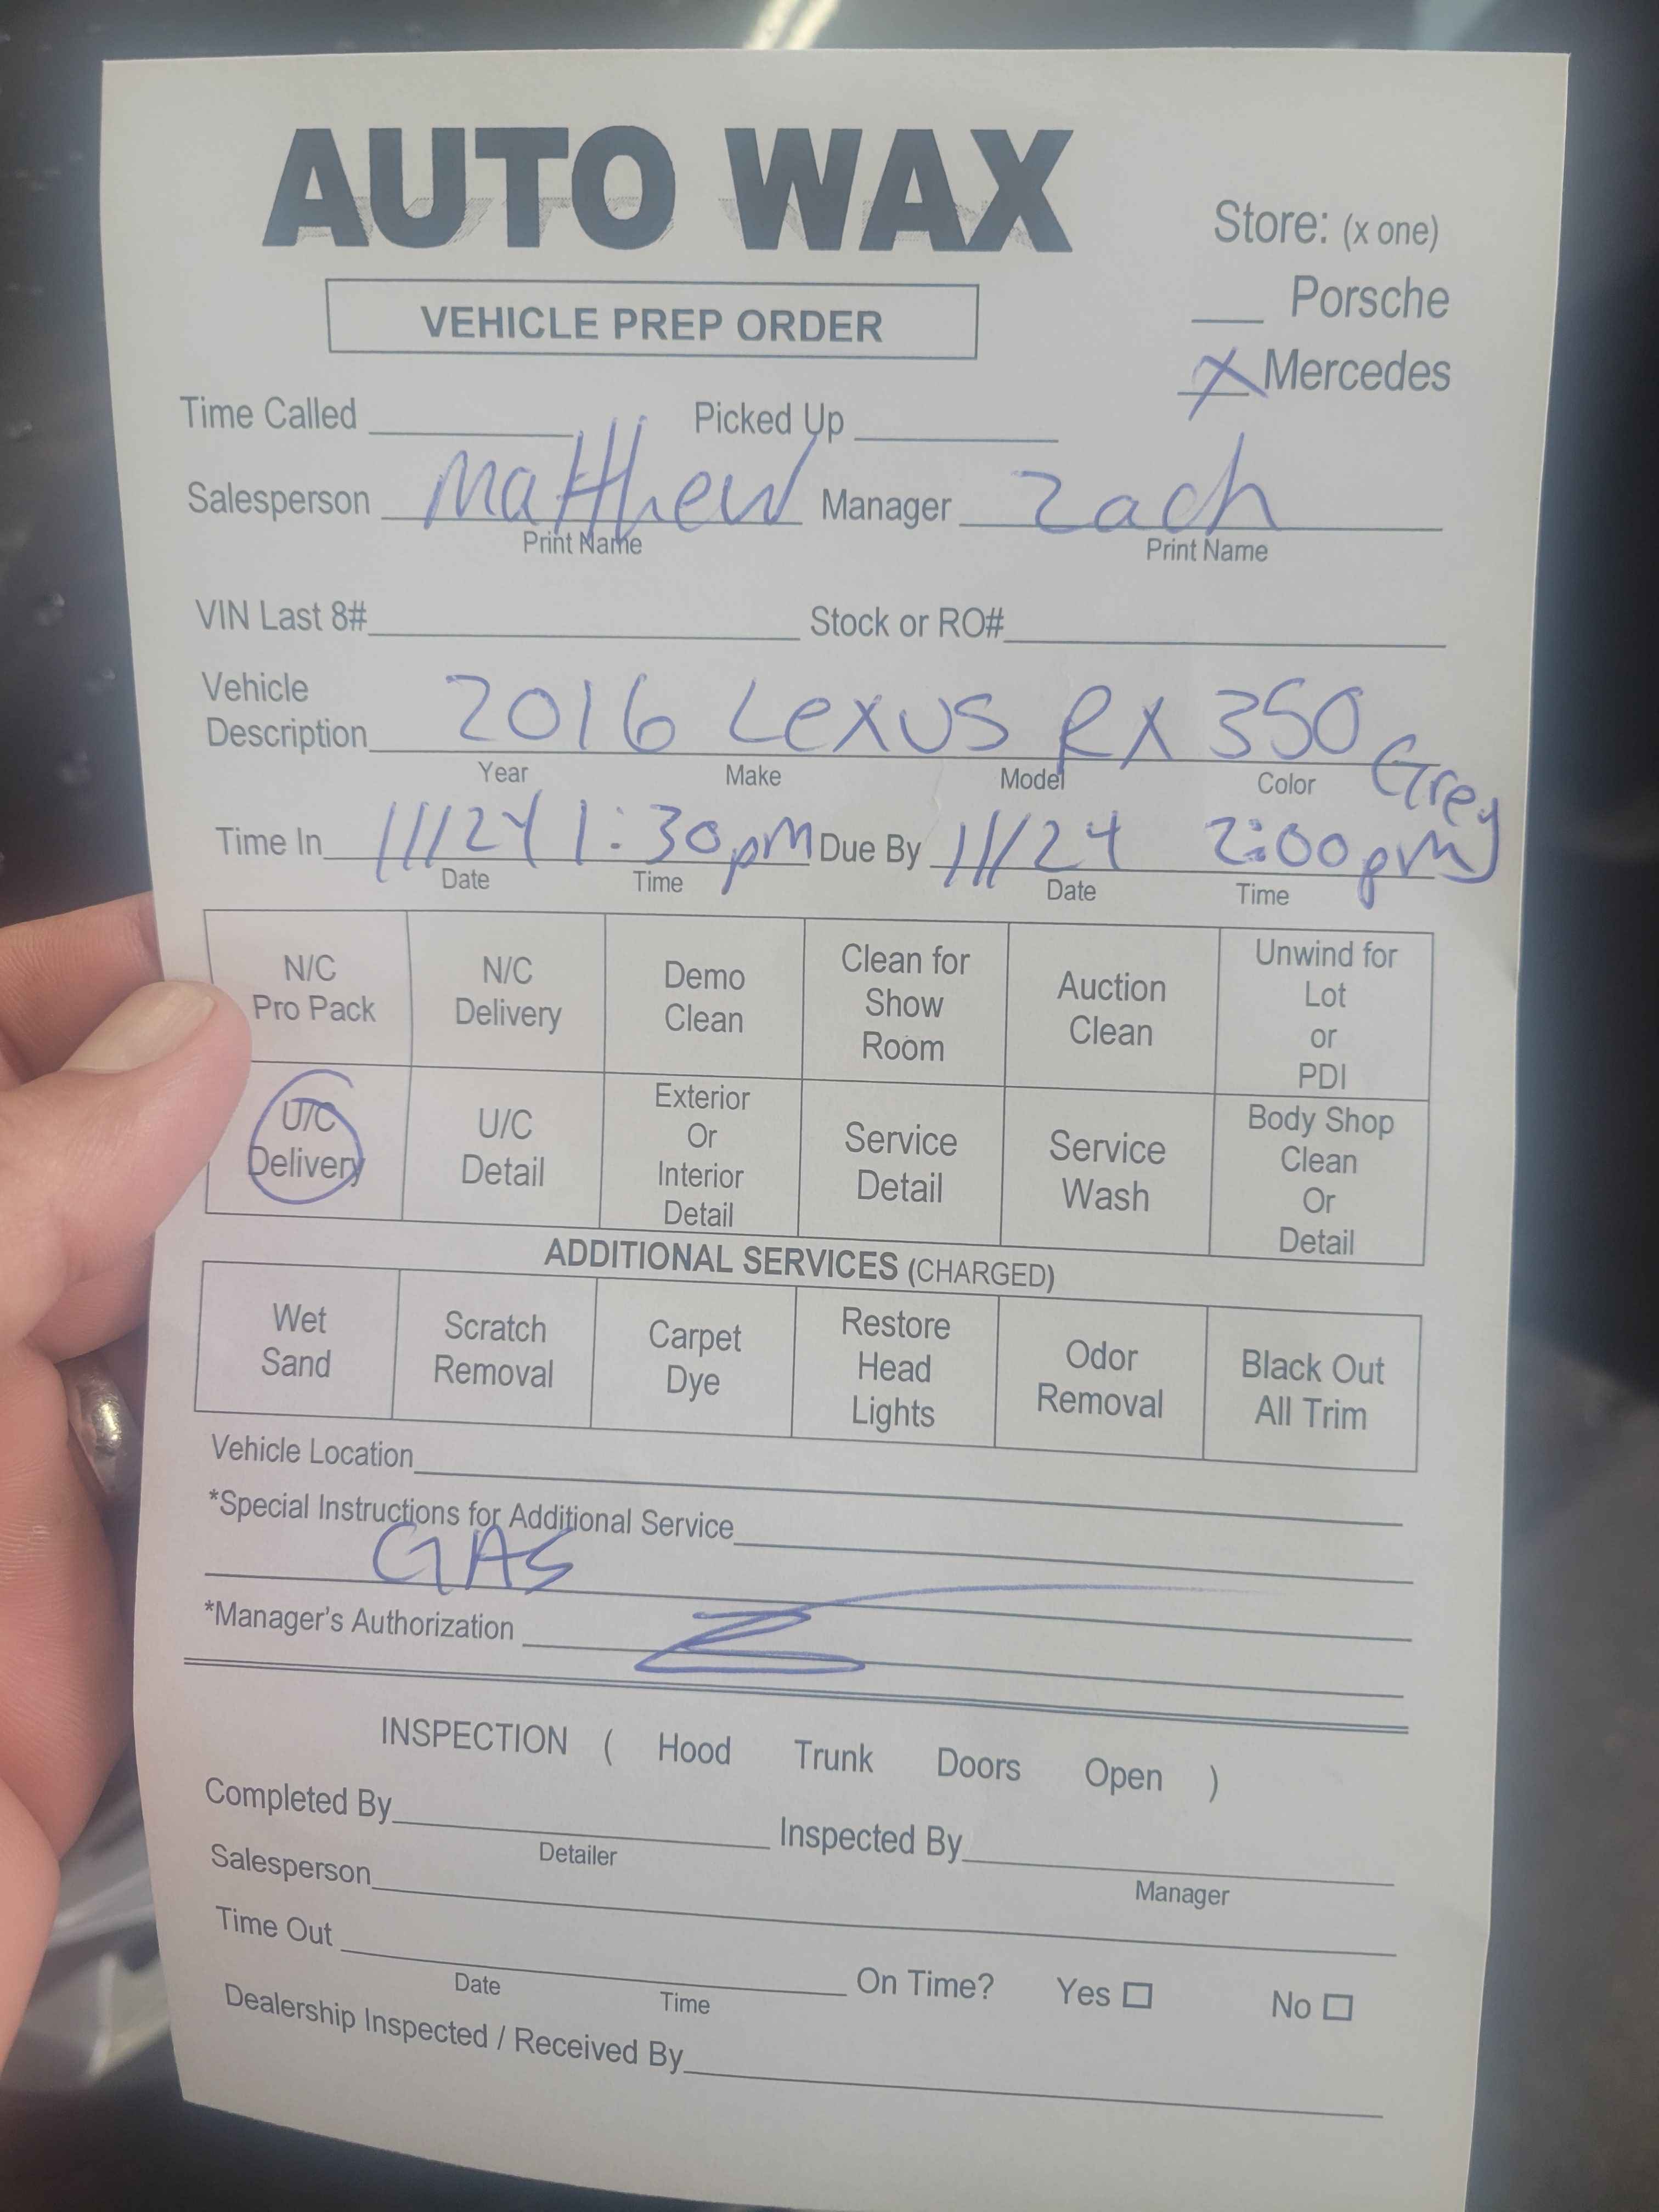 AUTO WAX
Store: (x one)
VEHICLE PREP ORDER
___ Porsche
X Mercedes
Time Called ___ Picked Up ___
Salesperson Matthew Manager Zach
Print Name Print Name
VIN Last 8# ___ Stock or RO# ___
Vehicle
Description 2016 Lexus RX 350 Grey
Year Make Model Color
Time In 11/24 1:30pm Due By 11/24 2:00pm
Date Time Date Time
N/C Pro Pack
N/C Delivery
Demo Clean
Clean for Show Room
Auction Clean
Unwind for Lot or PDI
U/C Delivery
U/C Detail
Exterior Or Interior Detail
Service Detail
Service Wash
Body Shop Clean Or Detail
ADDITIONAL SERVICES (CHARGED)
Wet Sand
Scratch Removal
Carpet Dye
Restore Head Lights
Odor Removal
Black Out All Trim
Vehicle Location
*Special Instructions for Additional Service
GAS
*Manager's Authorization Z
INSPECTION ( Hood Trunk Doors Open )
Completed By ___ Inspected By ___
Detailer Manager
Salesperson
Time Out ___ On Time? Yes ☐ No ☐
Date Time
Dealership Inspected / Received By